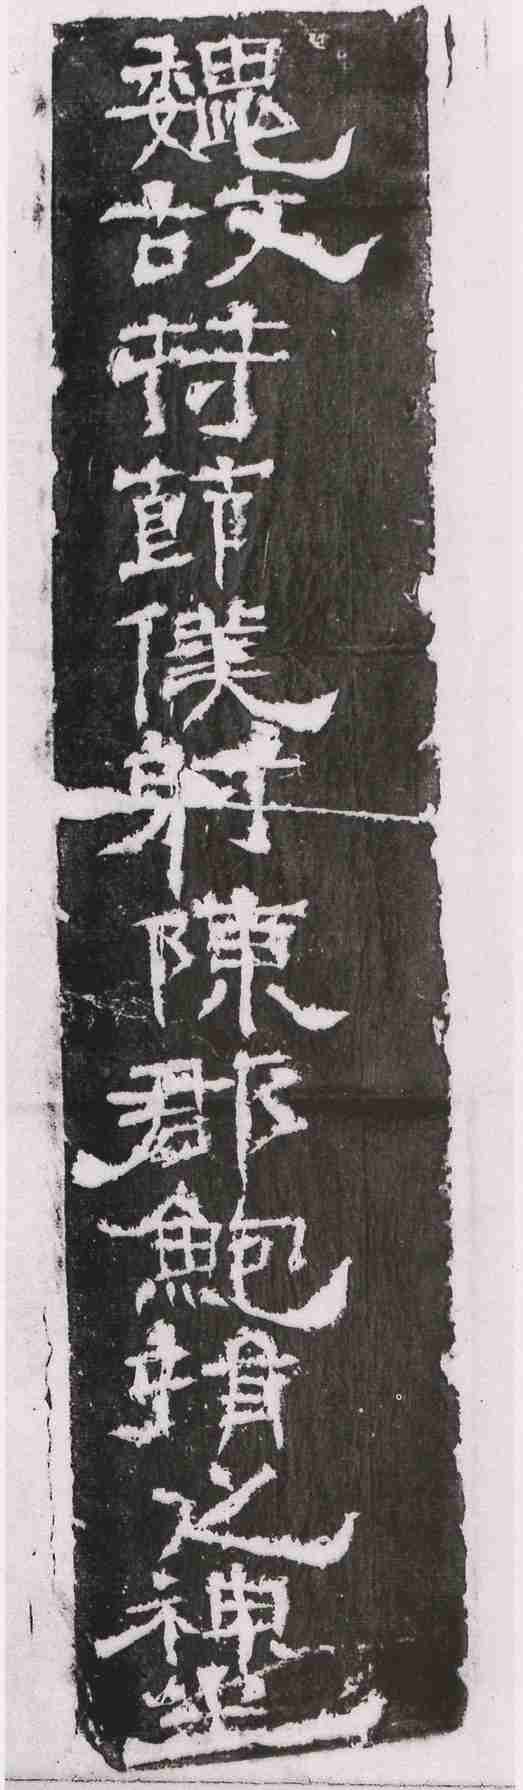 魏故持節僕射陳郡鮑捐之神坐